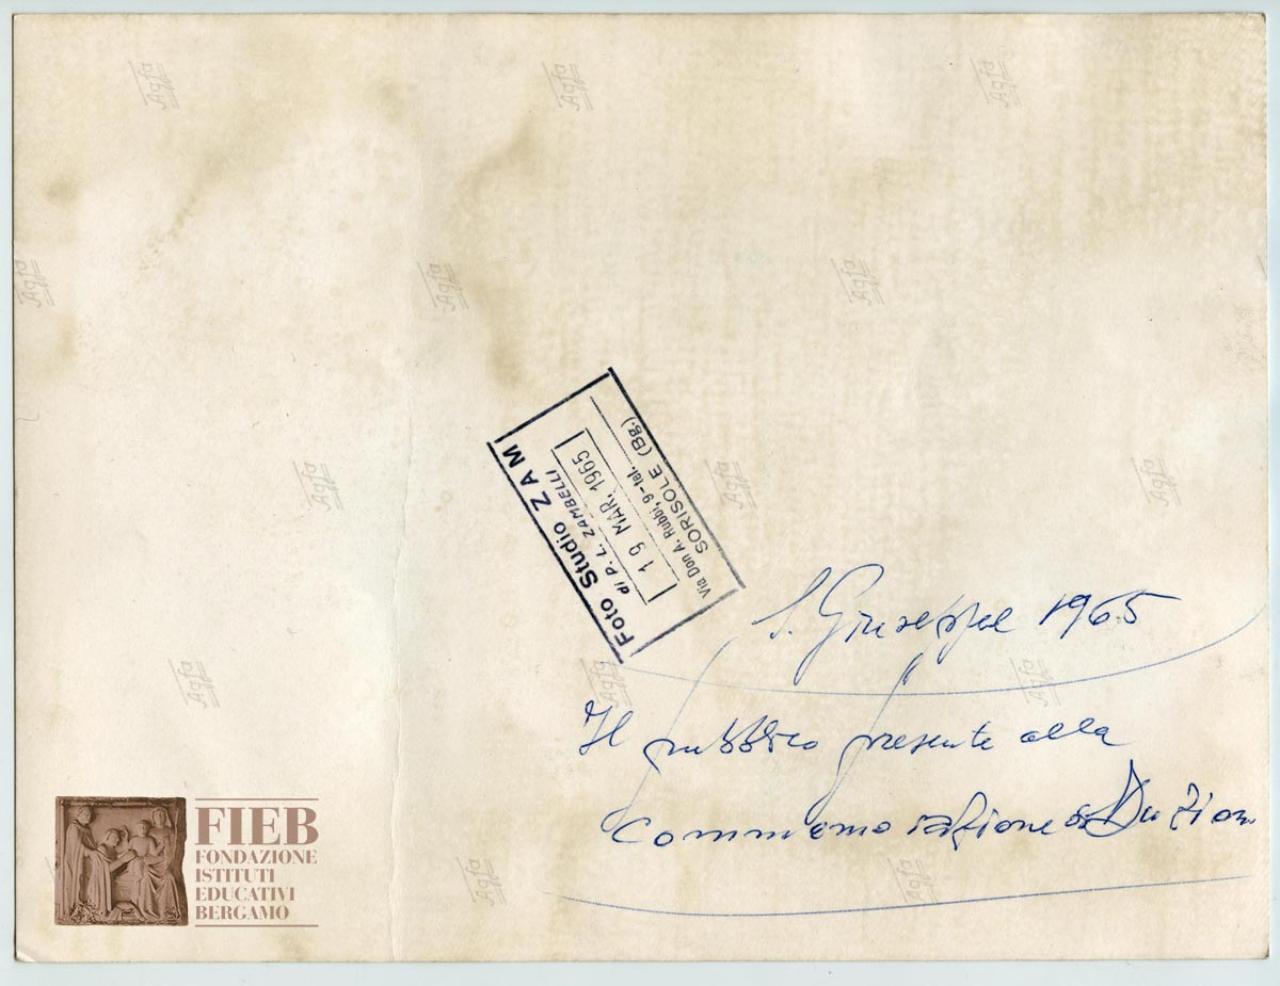 Agfa Agfa Agfa
Agfa Agfa Agfa
Foto Studio ZAM
di P. L. ZAMBELLI
19 MAR. 1965
Via Don A. Rubbi, 9 - tel.
SORISOLE (Bg.)
Agfa Agfa Agfa
S. Giuseppe 1965
Agfa Agfa Agfa
Il pubblico presente alla
Commemorazione di
FIEB
FONDAZIONE
ISTITUTI
EDUCATIVI
BERGAMO
Agfa Agfa